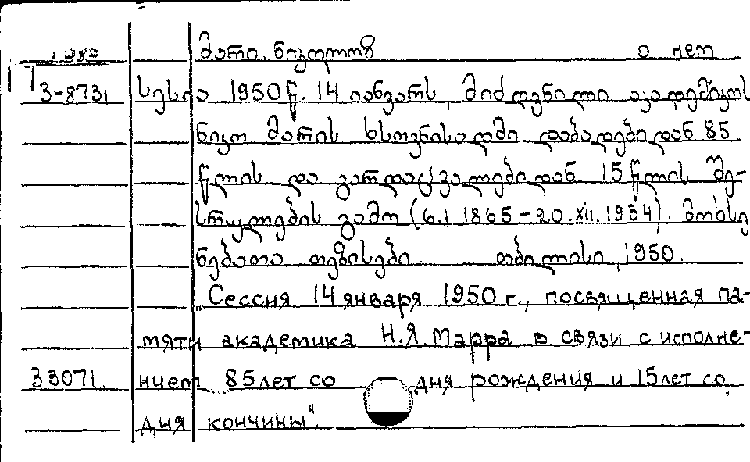 მარი, ნიკოლოზ о нем
3-8731 სესია 1950 წ. 14 იანვარს, მიძღვნილი აკადემიკოს
ნიკო მარის ხსოვნისადმი დაბადებიდან 85
წლის და გარდაცვალებიდან 15 წლის შე-
სრულების გამო (6.I 1865 – 20.XII.1934). მოხსე
ნებათა თეზისები თბილისი, 1950.
„Сессия 14 января 1950 г., посвященная па-
мяти академика Н.Я. Марра в связи с исполне-
33071. нием 85 лет со дня рождения и 15 лет со
дня кончины".